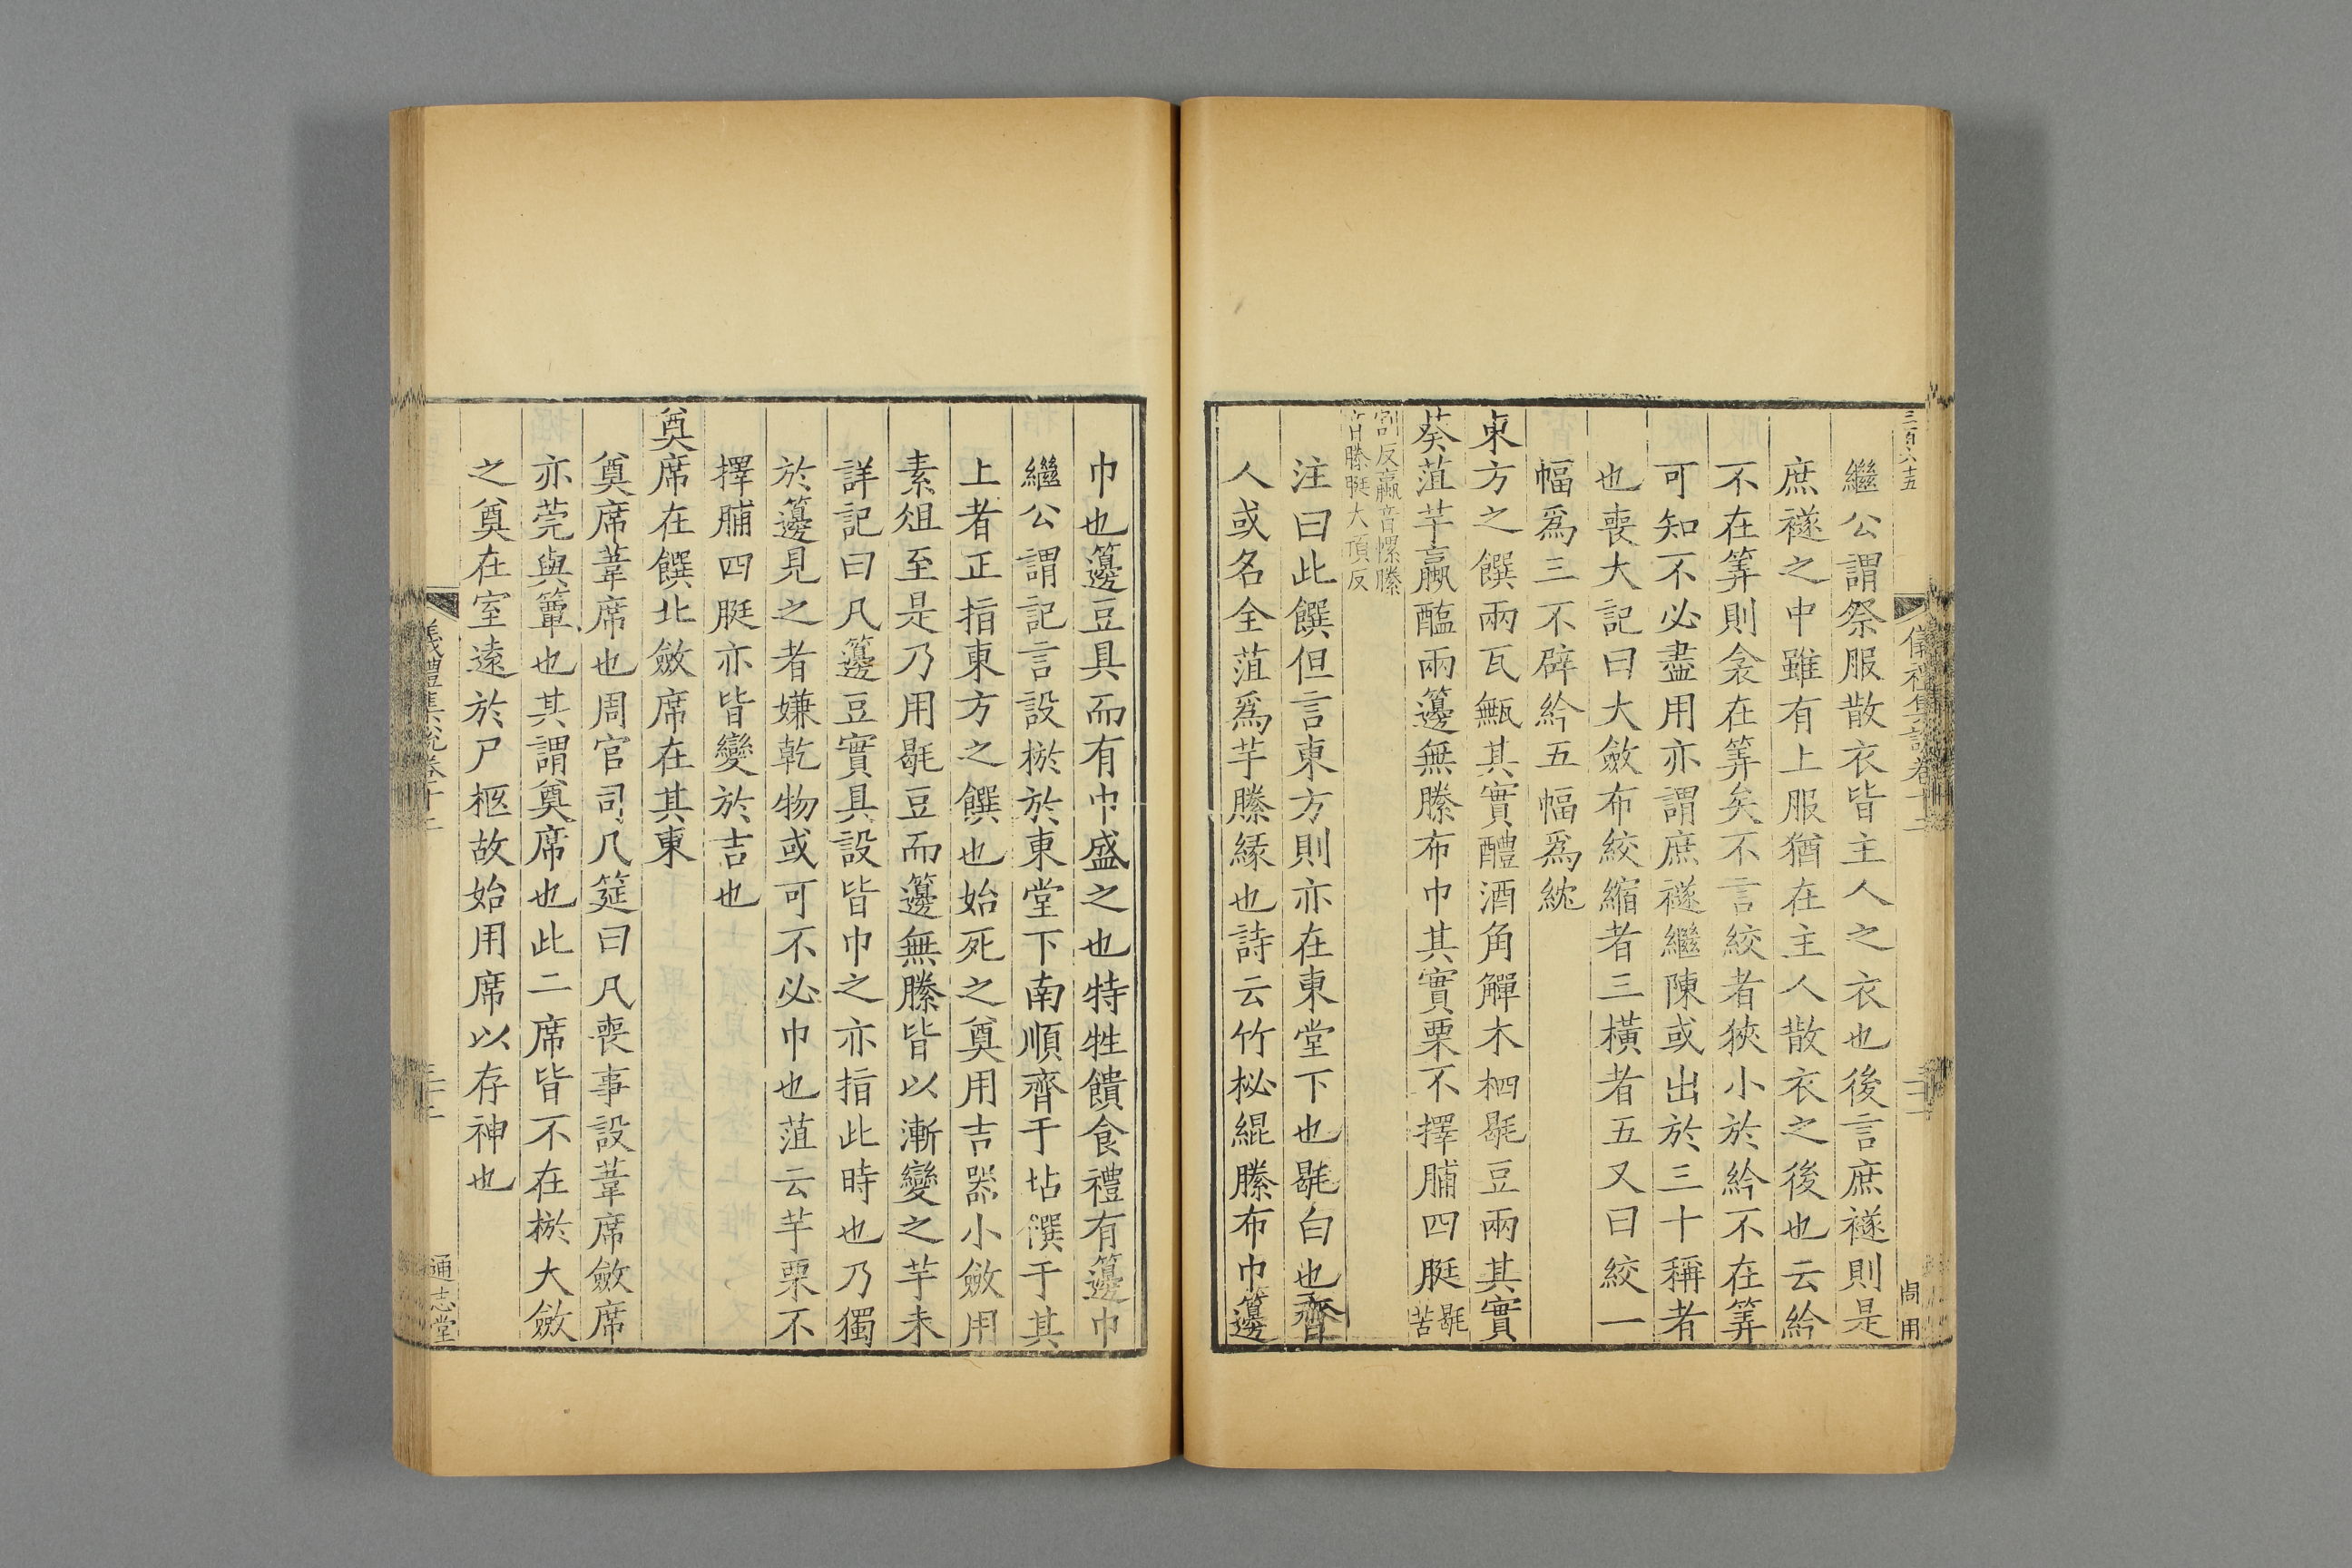 三百六十五
繼公謂祭服散衣皆主人之衣也後言庶襚則是
庶襚之中雖有上服猶在主人散衣之後也云紟
不在筭則衾在筭矣不言絞者狹小於紟不在筭
可知不必盡用亦謂庶襚繼陳或出於三十稱者
也喪大記曰大斂布絞縮者三橫者五又曰絞一
幅爲三不辟紟五幅爲紞
東方之饌兩瓦甒其實醴酒角觶木柶毼豆兩其實
葵菹芋蠃醢兩籩無縢布巾其實栗不擇脯四脡毼苦
割反蠃音螺縢
音縢脡大頂反
注曰此饌但言東方則亦在東堂下也毼白也齊
人或名全菹爲芋縢緣也詩云竹柲緄縢布巾籩
巾也籩豆具而有巾盛之也特牲饋食禮有籩巾
繼公謂記言設棜於東堂下南順齊于坫饌于其
上者正指東方之饌也始死之奠用吉器小斂用
素俎至是乃用毼豆而籩無縢皆以漸變之芋未
詳記曰凡籩豆實具設皆巾之亦指此時也乃獨
於籩見之者嫌乾物或可不必巾也菹云芋栗不
擇脯四脡亦皆變於吉也
奠席在饌北斂席在其東
奠席葦席也周官司几筵曰凡喪事設葦席斂席
亦莞與簟也其謂奠席也此二席皆不在棜大斂
之奠在室遠於尸柩故始用席以存神也
儀禮集說卷十二
通志堂